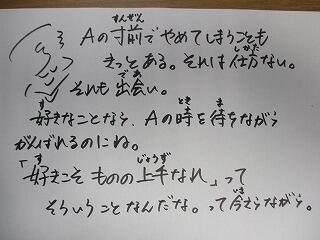 Aの寸前でやめてしまうことも
きっとある。それは仕方ない。
それも出会い。
好きなことなら、Aの時を待ちながら
がんばれるのにね。
「好きこそものの上手なれ」って
そういうことなんだな。って今さらながら。